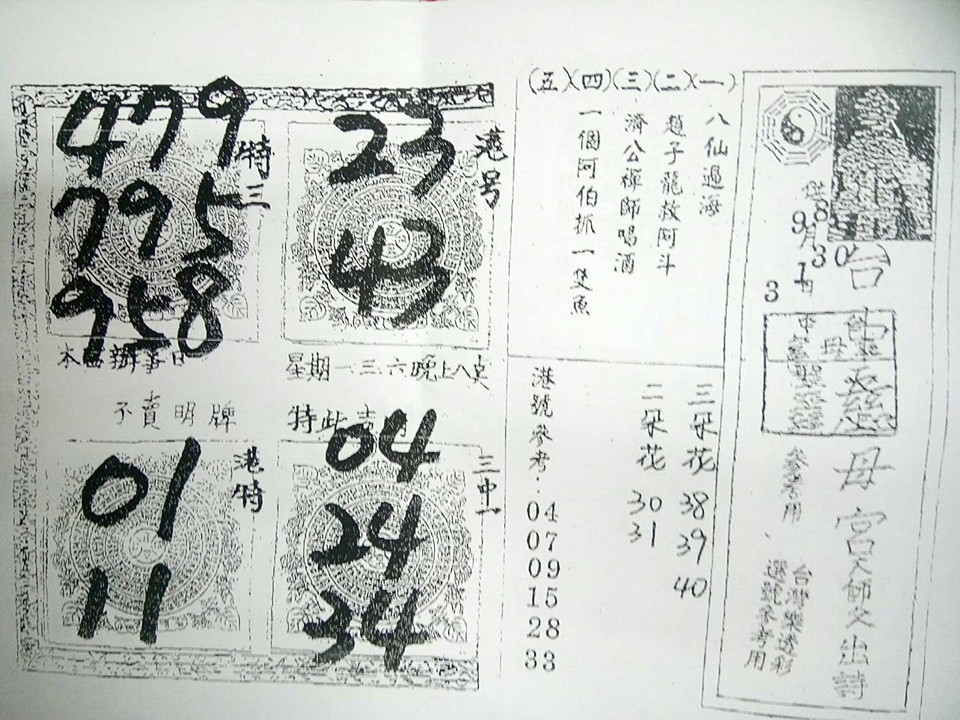 台
母宮天師父出詩
供
9月
8
30
1
3
參考用
台灣樂透彩
選號參考用
(一)八仙過海
(二)趙子龍救阿斗
(三)濟公禪師唱酒
(四)一個阿伯抓一隻魚
(五)
三朵花 38 39 40
二朵花 30 31
港號參考:
04
07
09
15
28
33
港号
23
43
特三
479
795
958
星期一三六晚上八點
本
辦事日
特此
不賣明牌
三中一
04
24
34
港特
01
11